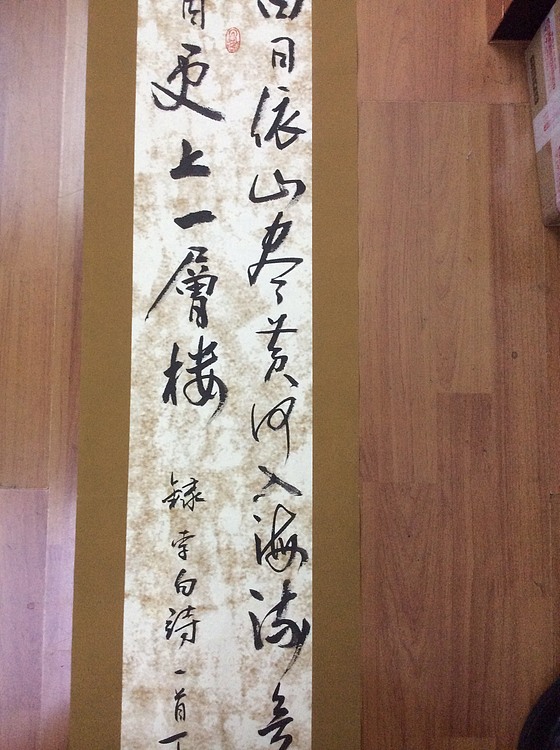 白日依山尽黄河入海流
目更上一層楼
録李白詩一首